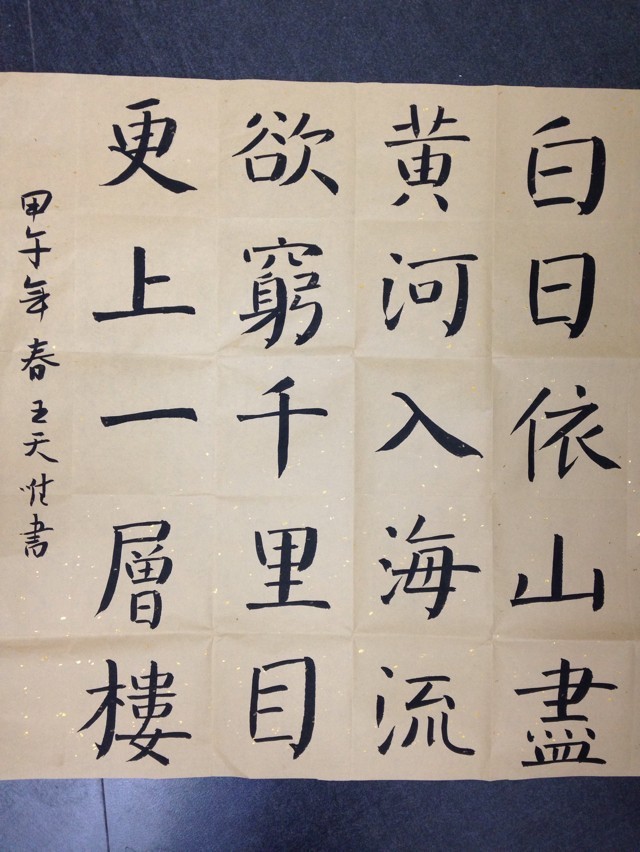 白日依山盡
黃河入海流
欲窮千里目
更上一層樓
甲午年春王天書